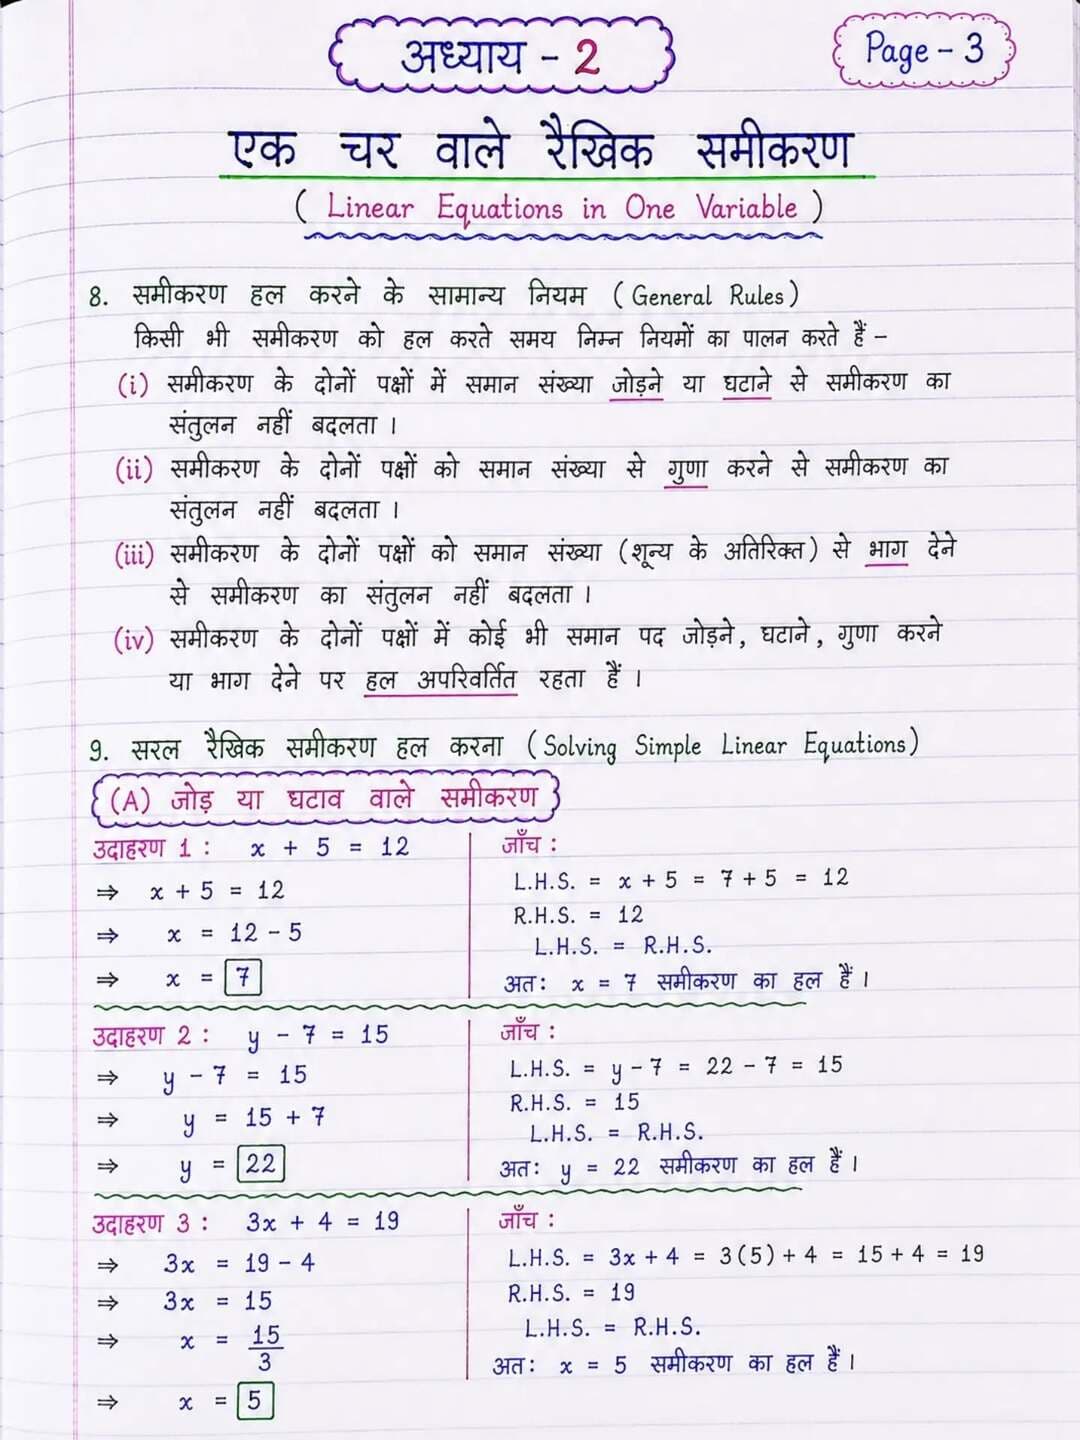 अध्याय - 2
Page - 3
एक चर वाले रैखिक समीकरण
( Linear Equations in One Variable )
8. समीकरण हल करने के सामान्य नियम ( General Rules )
किसी भी समीकरण को हल करते समय निम्न नियमों का पालन करते हैं –
(i) समीकरण के दोनों पक्षों में समान संख्या जोड़ने या घटाने से समीकरण का
संतुलन नहीं बदलता ।
(ii) समीकरण के दोनों पक्षों को समान संख्या से गुणा करने से समीकरण का
संतुलन नहीं बदलता ।
(iii) समीकरण के दोनों पक्षों को समान संख्या (शून्य के अतिरिक्त) से भाग देने
से समीकरण का संतुलन नहीं बदलता ।
(iv) समीकरण के दोनों पक्षों में कोई भी समान पद जोड़ने, घटाने, गुणा करने
या भाग देने पर हल अपरिवर्तित रहता हैं ।
9. सरल रैखिक समीकरण हल करना ( Solving Simple Linear Equations )
(A) जोड़ या घटाव वाले समीकरण
उदाहरण 1 : x + 5 = 12
⇒ x + 5 = 12
⇒ x = 12 - 5
⇒ x = 7
जाँच :
L.H.S. = x + 5 = 7 + 5 = 12
R.H.S. = 12
L.H.S. = R.H.S.
अतः x = 7 समीकरण का हल हैं ।
उदाहरण 2 : y - 7 = 15
⇒ y - 7 = 15
⇒ y = 15 + 7
⇒ y = 22
जाँच :
L.H.S. = y - 7 = 22 - 7 = 15
R.H.S. = 15
L.H.S. = R.H.S.
अतः y = 22 समीकरण का हल हैं ।
उदाहरण 3 : 3x + 4 = 19
⇒ 3x = 19 - 4
⇒ 3x = 15
⇒ x = 15/3
⇒ x = 5
जाँच :
L.H.S. = 3x + 4 = 3(5) + 4 = 15 + 4 = 19
R.H.S. = 19
L.H.S. = R.H.S.
अतः x = 5 समीकरण का हल हैं ।